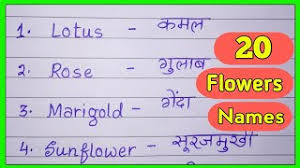 1. Lotus - कमल
2. Rose - गुलाब
3. Marigold - गेंदा
4. Sunflower - सूरजमुखी
20
Flowers
Names